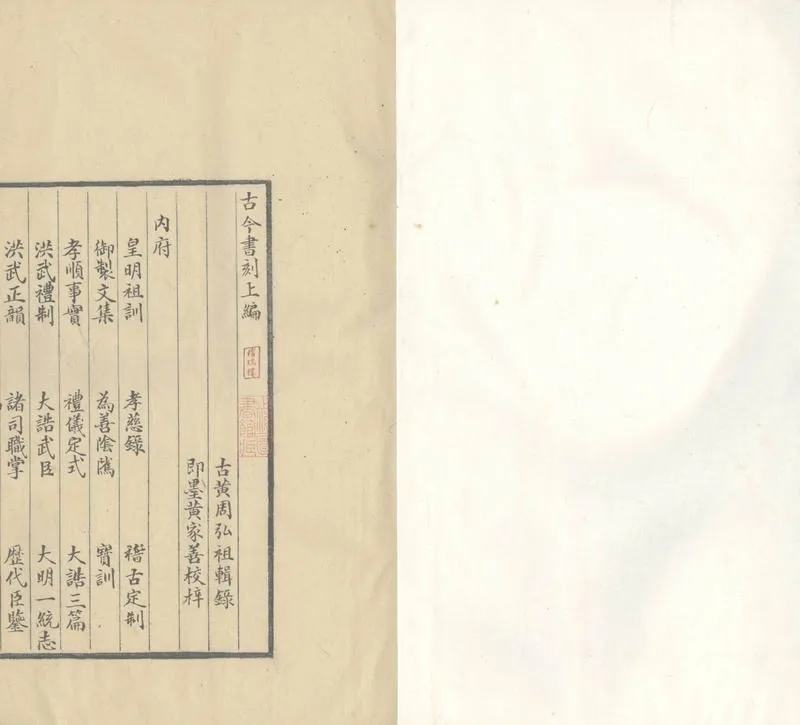 古今書刻上編
稽瑞樓
古黄周弘祖輯錄
即墨黄家善校梓
内府
皇明祖訓 孝慈錄 稽古定制
御製文集 為善陰隲 寳訓
孝順事實 禮儀定式 大誥三篇
洪武禮制 大誥武臣 大明一統志
洪武正韻 諸司職掌 歷代臣鑒